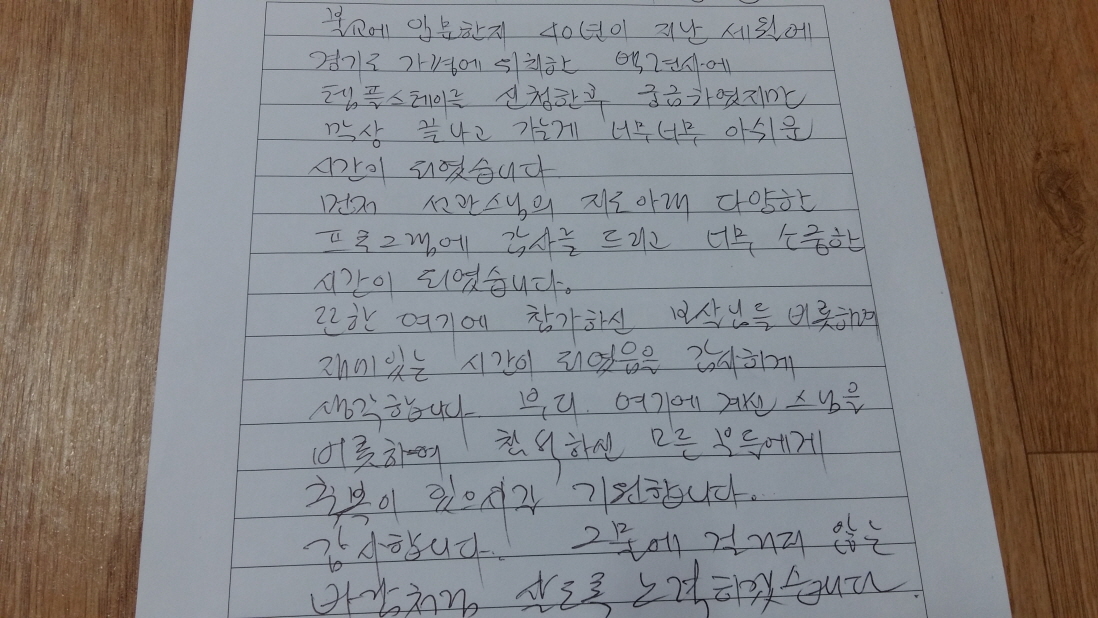 불교에 입문한지 40년이 지난 세월에
경기도 가평에 위치한 백련사에
템플스테이를 신청한후 궁금하였지만
막상 끝나고 가는게 너무너무 아쉬운
시간이 되였습니다
먼저 선관스님의 지도아래 다양한
프로그램에 감사를 드리고 너무 소중한
시간이 되였습니다.
또한 여기에 참가하신 보살님들 비롯하여
재미있는 시간이 되였음을 감사하게
생각합니다. 부디 여기에 계신 스님을
비롯하여 참석하신 모든 분들에게
축복이 있으시길 기원합니다.
감사합니다. 그물에 걸리지 않는
바람처럼 살도록 노력하겠습니다.